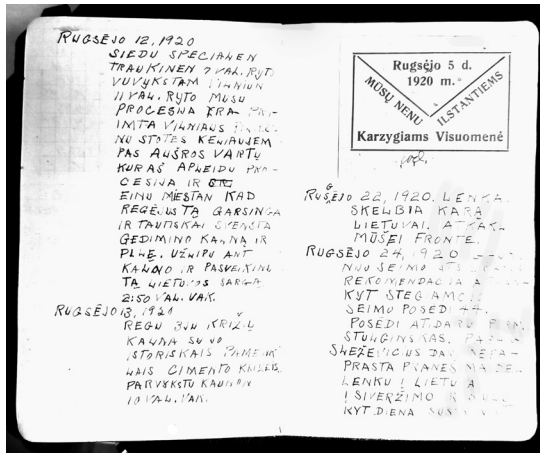 RUGSĖJO 12, 1920
SIEDU SPECIALEN
TRAUKINEN 7 VAL. RYTO
VUVYKSTAM VILNIUN
11 VAL. RYTO MUSU
PROCESNA KRA PRI-
IMTA VILNIAUS
NU STOTES KELIAUJEM
PAS AUŠROS VARTU
KURAS APLEIDU PRO-
CESIJA IR
EINU MIESTAN KAD
REGEJUS TA GARSINGA
IR TAUTISKAI SVENSTA
GEDIMINO KALNA IR
PILĘ. UŽLIPU ANT
KALNO IR PASVEIKINU
TA LIETUVOS SARGA
2:50 VAL. VAK.
RUGSĖJO 13, 1920
REGU 3JU KRIŽIU
KALNA SU JO
ISTORISKAIS PAMINK
LAIS CIMENTO KRIZEIS.
PARVYKSTU KAUNAN
10 VAL. VAK.
Rugsėjo 5 d.
1920 m.
MŪSŲ NENU ILSTANTIEMS
Karzygiams Visuomenė
RUGSĖJO 22, 1920. LENKA
SKELBIA KARĄ
LIETUVAI. ATKAKL
MŪŠEI FRONTE.
RUGSĖJO 24, 1920
NIU SEIMO
REKOMENDACIJA
KYT STEG
SEIMO POSEDI
POSEDI ATIDARO PIRM.
STULGINSKAS.
SLEŽEVICIUS
PRASTA
LENKU Į LIETU A
ĮSIVERŽIMO IR
KYT DIENA